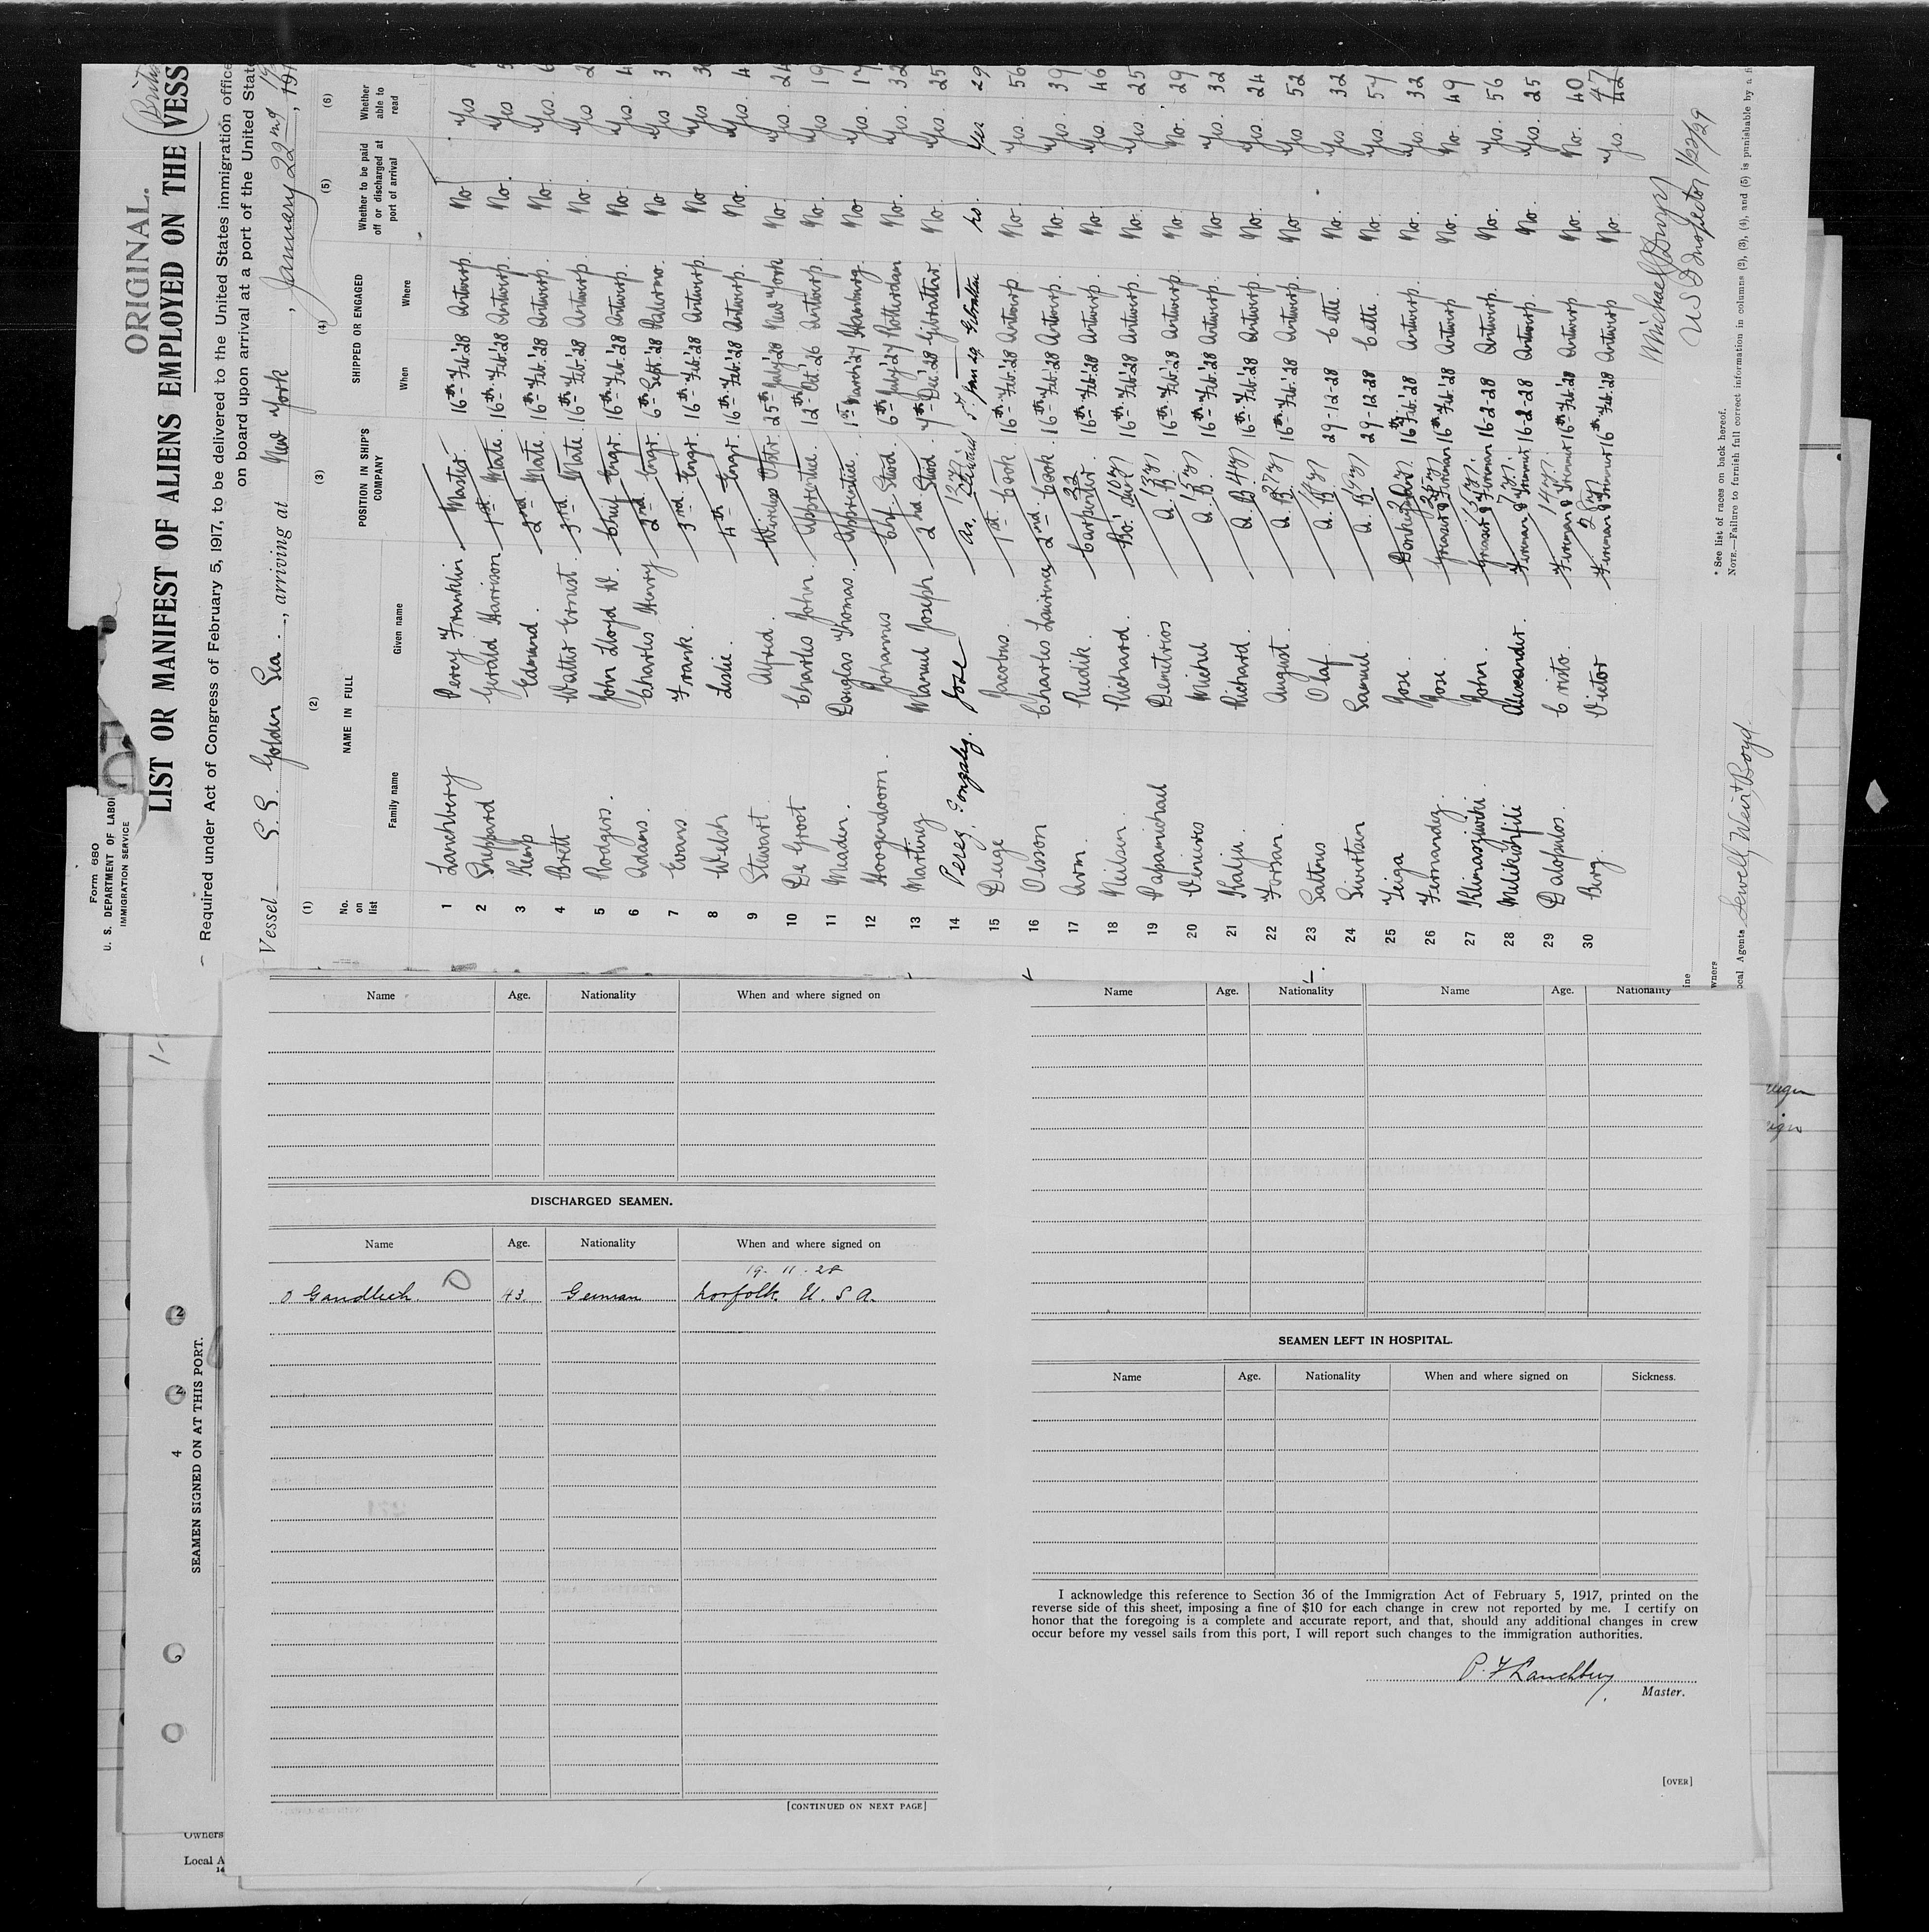 Form 680
U. S. DEPARTMENT OF LABOR
IMMIGRATION SERVICE
ORIGINAL.
LIST OR MANIFEST OF ALIENS EMPLOYED ON THE VESS
Required under Act of Congress of February 5, 1917, to be delivered to the United States immigration office
on board upon arrival at a port of the United State
Vessel S.S. Golden Sea, arriving at New York, January 22nd
(1) (2) (3) (4) (5) (6)
No. on list NAME IN FULL POSITION IN SHIP'S COMPANY SHIPPED OR ENGAGED Whether to be paid off or discharged at port of arrival Whether able to read
Family name Given name When Where
1 Lanchbery Percy Franklin Master 16th Feb. '28 Antwerp. No Yes
2 Sheppard Gerald Harrison 1st Mate 16th Feb. '28 Antwerp. No. Yes
3 Kemp Edmund. 2nd Mate 16th Feb. '28 Antwerp. No. Yes.
4 Brett Walter Ernest 3rd Mate 16th Feb. '28 Antwerp No. Yes.
5 Rodgers. John Lloyd W. Chief Engr. 16th Feb. '28 Antwerp No. Yes.
6 Adams. Charles Henry 2nd Engr. 6th Sept. '28 Palermo. No Yes
7 Evans Frank. 3rd Engr 16th Feb. '28 Antwerp. No Yes
8 Welsh Leslie. 4th Engr. 16th Feb. '28 Antwerp. No. Yes.
9 Stewart. Alfred. Wireless Optr 25th July '28 New York No. Yes. 24
10 De Groot Charles John. Apprentice. 12th Oct. '26 Antwerp. No. Yes. 19
11 Meaden. Douglas Thomas. Apprentice. 1st March '27 Hamburg. No Yes.
12 Hoogendoorn. Johannes Chf. Stwd. 6th July '27 Rotterdam No. Yes. 32
13 Martinez Manuel Joseph 2nd Stwd. 7th Dec. '28 Gibraltar. No. Yes. 25
14 Perez, Gonzalez. Jose As. Steward 5th Jan 29 Gibraltar No. Yes 29
15 Duge Jacobus. 1st Cook 16th Feb. '28 Antwerp No Yes. 56
16 Olsson Charles Laurence 2nd Cook. 16th Feb. '28 Antwerp. No. Yes. 39
17 Arm. Rudik. Carpenter. 16th Feb. '28 Antwerp. No. Yes. 46
18 Neilsen. Richard. 16th Feb. '28 Antwerp. No. Yes. 25
19 Papamichail Demitrios A. B. 16th Feb. '28 Antwerp. No. No. 29
20 Venieris Michel A. B. 16th Feb. '28 Antwerp. No. Yes. 32
21 Kalju. Richard. A. B. 16th Feb. '28 Antwerp. No. Yes. 24
22 Forsan. August. A. B. 16th Feb. '28 Antwerp. No. Yes. 52
23 Sattrus Olaf. A. B. 29-12-28 Cette. No. Yes. 32
24 Sivertsen Samuel. A. B. 29-12-28 Cette. No. Yes. 54
25 Veiga Jose. Donkeyman 16th Feb. '28 Antwerp. No. Yes. 32
26 Fernandez. Jose. Greaser & Fireman 16th Feb. '28 Antwerp No. No. 49
27 John. Greaser & Fireman 16-2-28 Antwerp. No. Yes. 56
28 Alexander. Fireman & Trimmer 16-2-28 Antwerp. No. Yes. 25
29 Dalopulos. Cristo. Fireman & Trimmer 16th Feb. '28 Antwerp. No. No. 40
30 Berg. Victor Fireman & Trimmer 16th Feb. '28 Antwerp No. Yes. 47
U S I Inspector 1/22/29
* See list of races on back hereof.
NOTE.—Failure to furnish full correct information in columns (2), (3), (4), and (5) is punishable by a fi
ine
wners
ocal Agents
SEAMEN SIGNED ON AT THIS PORT.
4
Name Age. Nationality When and where signed on
DISCHARGED SEAMEN.
Name Age. Nationality When and where signed on
19. 11. 28
O Gandlich. 43. German Norfolk U. S. A.
[CONTINUED ON NEXT PAGE]
Name Age. Nationality Name Age. Nationality
SEAMEN LEFT IN HOSPITAL.
Name Age. Nationality When and where signed on Sickness.
I acknowledge this reference to Section 36 of the Immigration Act of February 5, 1917, printed on the
reverse side of this sheet, imposing a fine of $10 for each change in crew not reported by me. I certify on
honor that the foregoing is a complete and accurate report, and that, should any additional changes in crew
occur before my vessel sails from this port, I will report such changes to the immigration authorities.
P. F Lanchbery
Master.
[OVER]
Owners
Local A